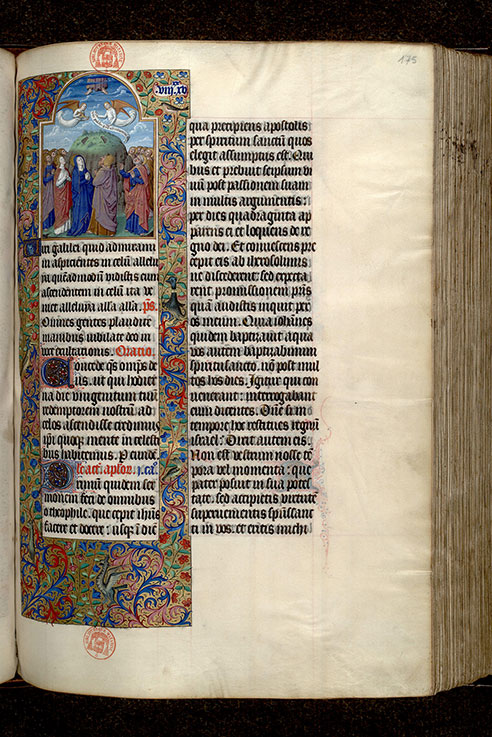 175
viii.xv
Viri galilei quid admiramini
in aspicientes in celum allelu
ya quemadmodum vidistis eum
ascendentem in celum ita ve
niet alleluya alla alla. ps.
Omnes gentes plaudite
manibus iubilate deo in
voce exultationis. Oratio.
Concede qs omps de
us. ut qui hodier
na die unigenitum tuū
redemptorem nostrum ad
celos ascendisse credimus
ipi quoq; mente in celesti
bus habitemus. P eumdē
lc act. aplor. j. ca.
Primum quidem ser
monem feci de omnibus
o theophile. que cepit ihūs
facere et docere: usq; in diē
qua precipiens apostolis
per spiritum sanctū quos
elegit assumptus est. Qui
bus et prebuit seipsum vi
vum post passionem suam
in multis argumentis:
per dies quadraginta ap
parens eis et loquens de re
gno dei. Et convescens pre
cepit eis ab iherosolimis
ne discederent: sed expecta
rent promissionem pr̄is
quam audistis inquit per
os meum. Quia iohānes
quidem baptizavit aqua
vos autem baptizabimini
spiritusancto. nō post mul
tos hos dies. Igitur qui con
venerant: interrogabant
eum dicentes. Dn̄e si in
tempore hoc restitues regnū
israel: Dixit autem eis
Non est vestrum nosse tē
pora vel momenta: que
pater posuit in sua potes
tate. sed accipietis virtutē
supervenientis sp̄ussanc
ti in vos. et eritis michi